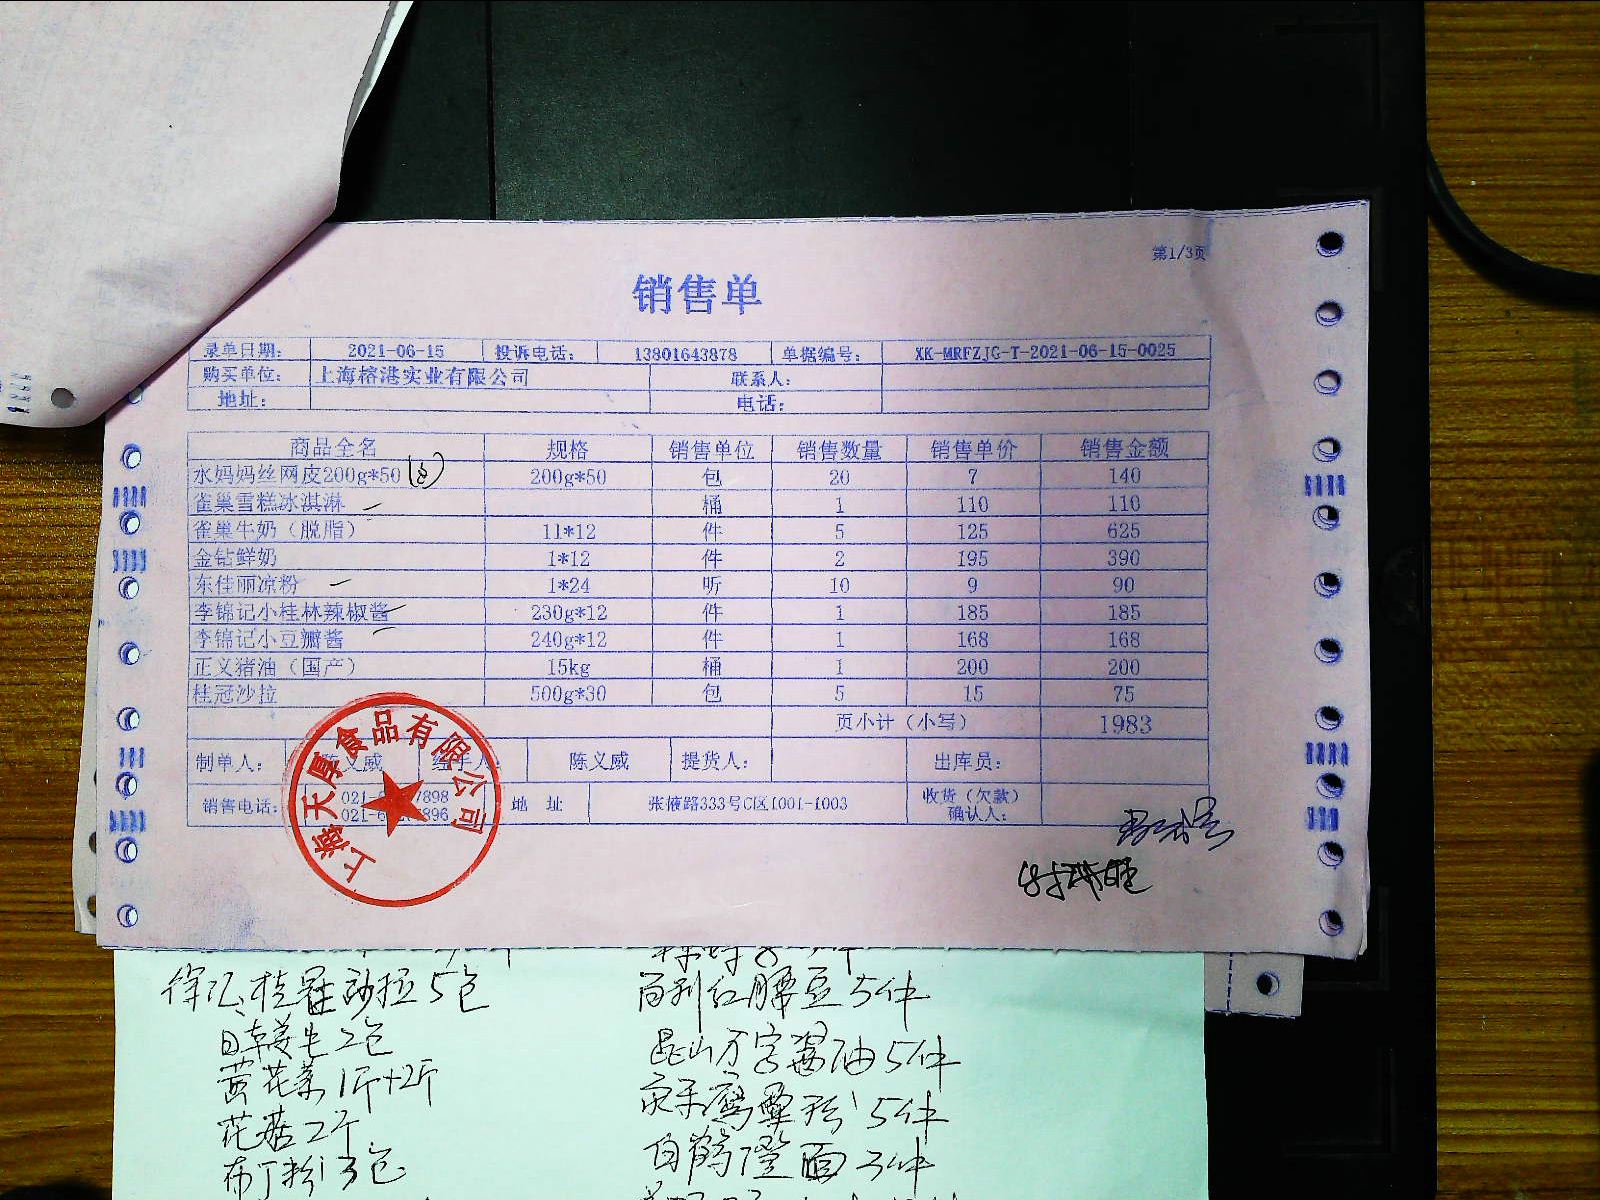 第1/3页
销售单
录单日期: 2021-06-15 投诉电话: 13801643878 单据编号: XK-MRFZJG-T-2021-06-15-0025
购买单位: 上海榕港实业有限公司 联系人:
地址: 电话:
商品全名 规格 销售单位 销售数量 销售单价 销售金额
水妈妈丝网皮200g*50 200g*50 包 20 7 140
雀巢雪糕冰淇淋 桶 1 110 110
雀巢牛奶（脱脂） 1l*12 件 5 125 625
金钻鲜奶 1*12 件 2 195 390
东佳丽凉粉 1*24 听 10 9 90
李锦记小桂林辣椒酱 230g*12 件 1 185 185
李锦记小豆瓣酱 240g*12 件 1 168 168
正义猪油（国产） 15kg 桶 1 200 200
桂冠沙拉 500g*30 包 5 15 75
页小计（小写） 1983
制单人: 陈义威 经手人: 陈义威 提货人: 出库员:
销售电话: 021-6 7898 地 址 张掖路333号C区1001-1003 收货（欠款）
021-6 896 确认人:
上海天厚食品有限公司
桂冠沙拉5包 百利红腰豆5件
2包 昆山万字酱油5件
黄花菜1斤+2斤 鹰粟粉5件
花菇2斤 白鹤澄面3件
布丁粉3包